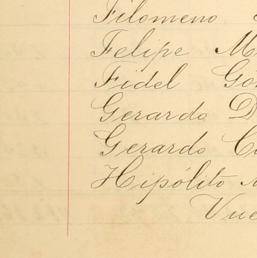 Filomeno
Felipe M
Fidel Go
Gerardo D
Gerardo C
Hipólito
Vue